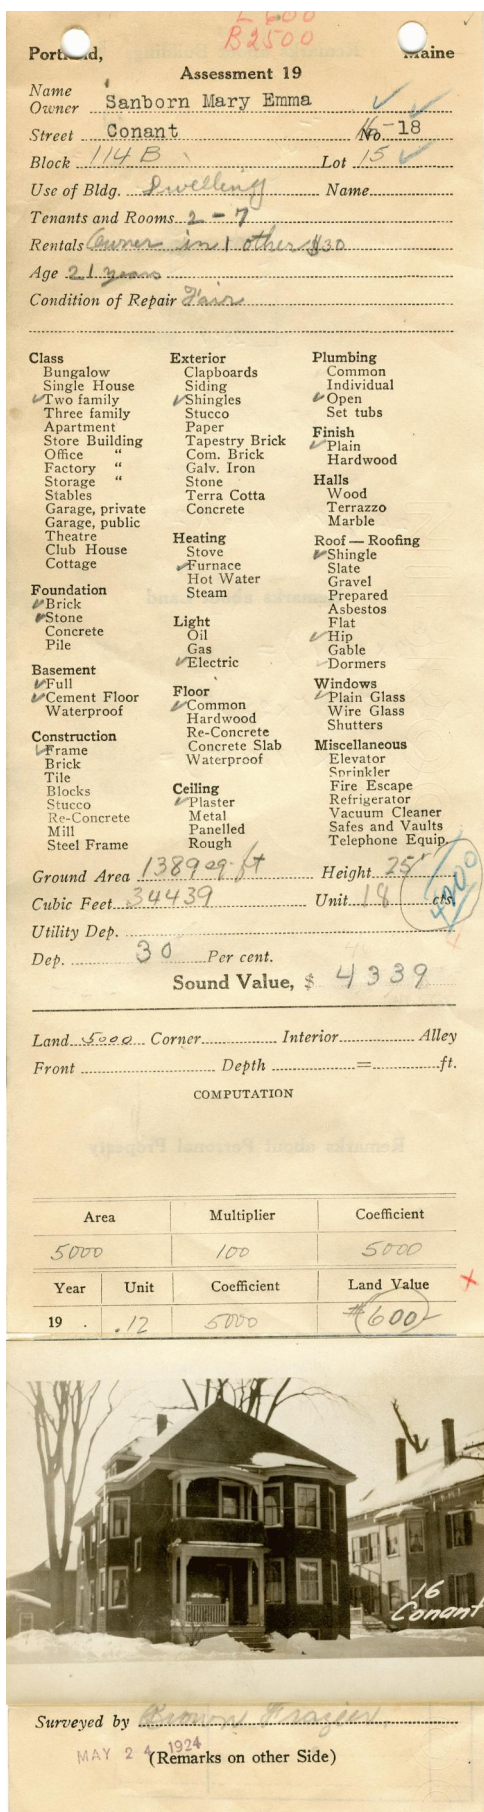 L 600
B 2500
Portland, Maine
Assessment 19
Name
Owner Sanborn Mary Emma
Street Conant No 16-18
Block 114 B Lot 15
Use of Bldg. Dwelling Name
Tenants and Rooms 2 - 7
Rentals Owner in 1 other $30
Age 21 years
Condition of Repair Fair
Class
Bungalow
Single House
✓ Two family
Three family
Apartment
Store Building
Office "
Factory "
Storage "
Stables
Garage, private
Garage, public
Theatre
Club House
Cottage
Foundation
✓ Brick
✓ Stone
Concrete
Pile
Basement
✓ Full
✓ Cement Floor
Waterproof
Construction
✓ Frame
Brick
Tile
Blocks
Stucco
Re-Concrete
Mill
Steel Frame
Exterior
Clapboards
Siding
✓ Shingles
Stucco
Paper
Tapestry Brick
Com. Brick
Galv. Iron
Stone
Terra Cotta
Concrete
Heating
Stove
✓ Furnace
Hot Water
Steam
Light
Oil
Gas
✓ Electric
Floor
✓ Common
Hardwood
Re-Concrete
Concrete Slab
Waterproof
Ceiling
✓ Plaster
Metal
Panelled
Rough
Plumbing
Common
Individual
✓ Open
Set tubs
Finish
✓ Plain
Hardwood
Halls
Wood
Terrazzo
Marble
Roof — Roofing
✓ Shingle
Slate
Gravel
Prepared
Asbestos
Flat
✓ Hip
Gable
✓ Dormers
Windows
✓ Plain Glass
Wire Glass
Shutters
Miscellaneous
Elevator
Sprinkler
Fire Escape
Refrigerator
Vacuum Cleaner
Safes and Vaults
Telephone Equip.
Ground Area 1389 sq. ft Height 25'
Cubic Feet 34439 Unit 18 cts.
4200
Utility Dep.
Dep. 30 Per cent.
Sound Value, $ 4339
Land 5000 Corner Interior Alley
Front Depth = ft.
COMPUTATION
Area Multiplier Coefficient
5000 100 5000
Year Unit Coefficient Land Value
19 . .12 5000 $600
16
Conant
Surveyed by Brown Frazier
MAY 24 1924
(Remarks on other Side)